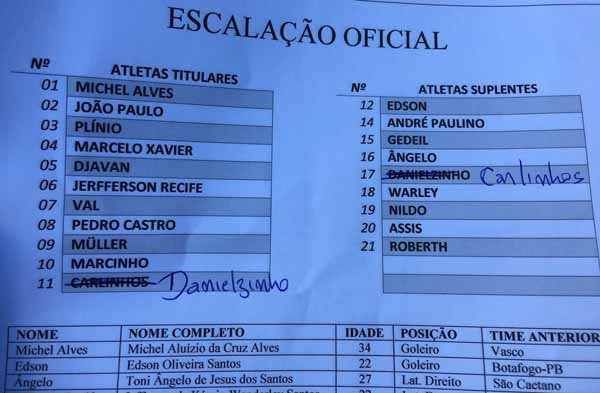 ESCALAÇÃO OFICIAL
Nº ATLETAS TITULARES
01 MICHEL ALVES
02 JOÃO PAULO
03 PLÍNIO
04 MARCELO XAVIER
05 DJAVAN
06 JERFFERSON RECIFE
07 VAL
08 PEDRO CASTRO
09 MÜLLER
10 MARCINHO
11 CARLINHOS Danielzinho
Nº ATLETAS SUPLENTES
12 EDSON
14 ANDRÉ PAULINO
15 GEDEIL
16 ÂNGELO
17 DANIELZINHO Carlinhos
18 WARLEY
19 NILDO
20 ASSIS
21 ROBERTH
NOME NOME COMPLETO IDADE POSIÇÃO TIME ANTERIOR
Michel Alves Michel Aluízio da Cruz Alves 34 Goleiro Vasco
Edson Edson Oliveira Santos 22 Goleiro Botafogo-PB
Ângelo Toni Ângelo de Jesus dos Santos 27 Lat. Direito São Caetano